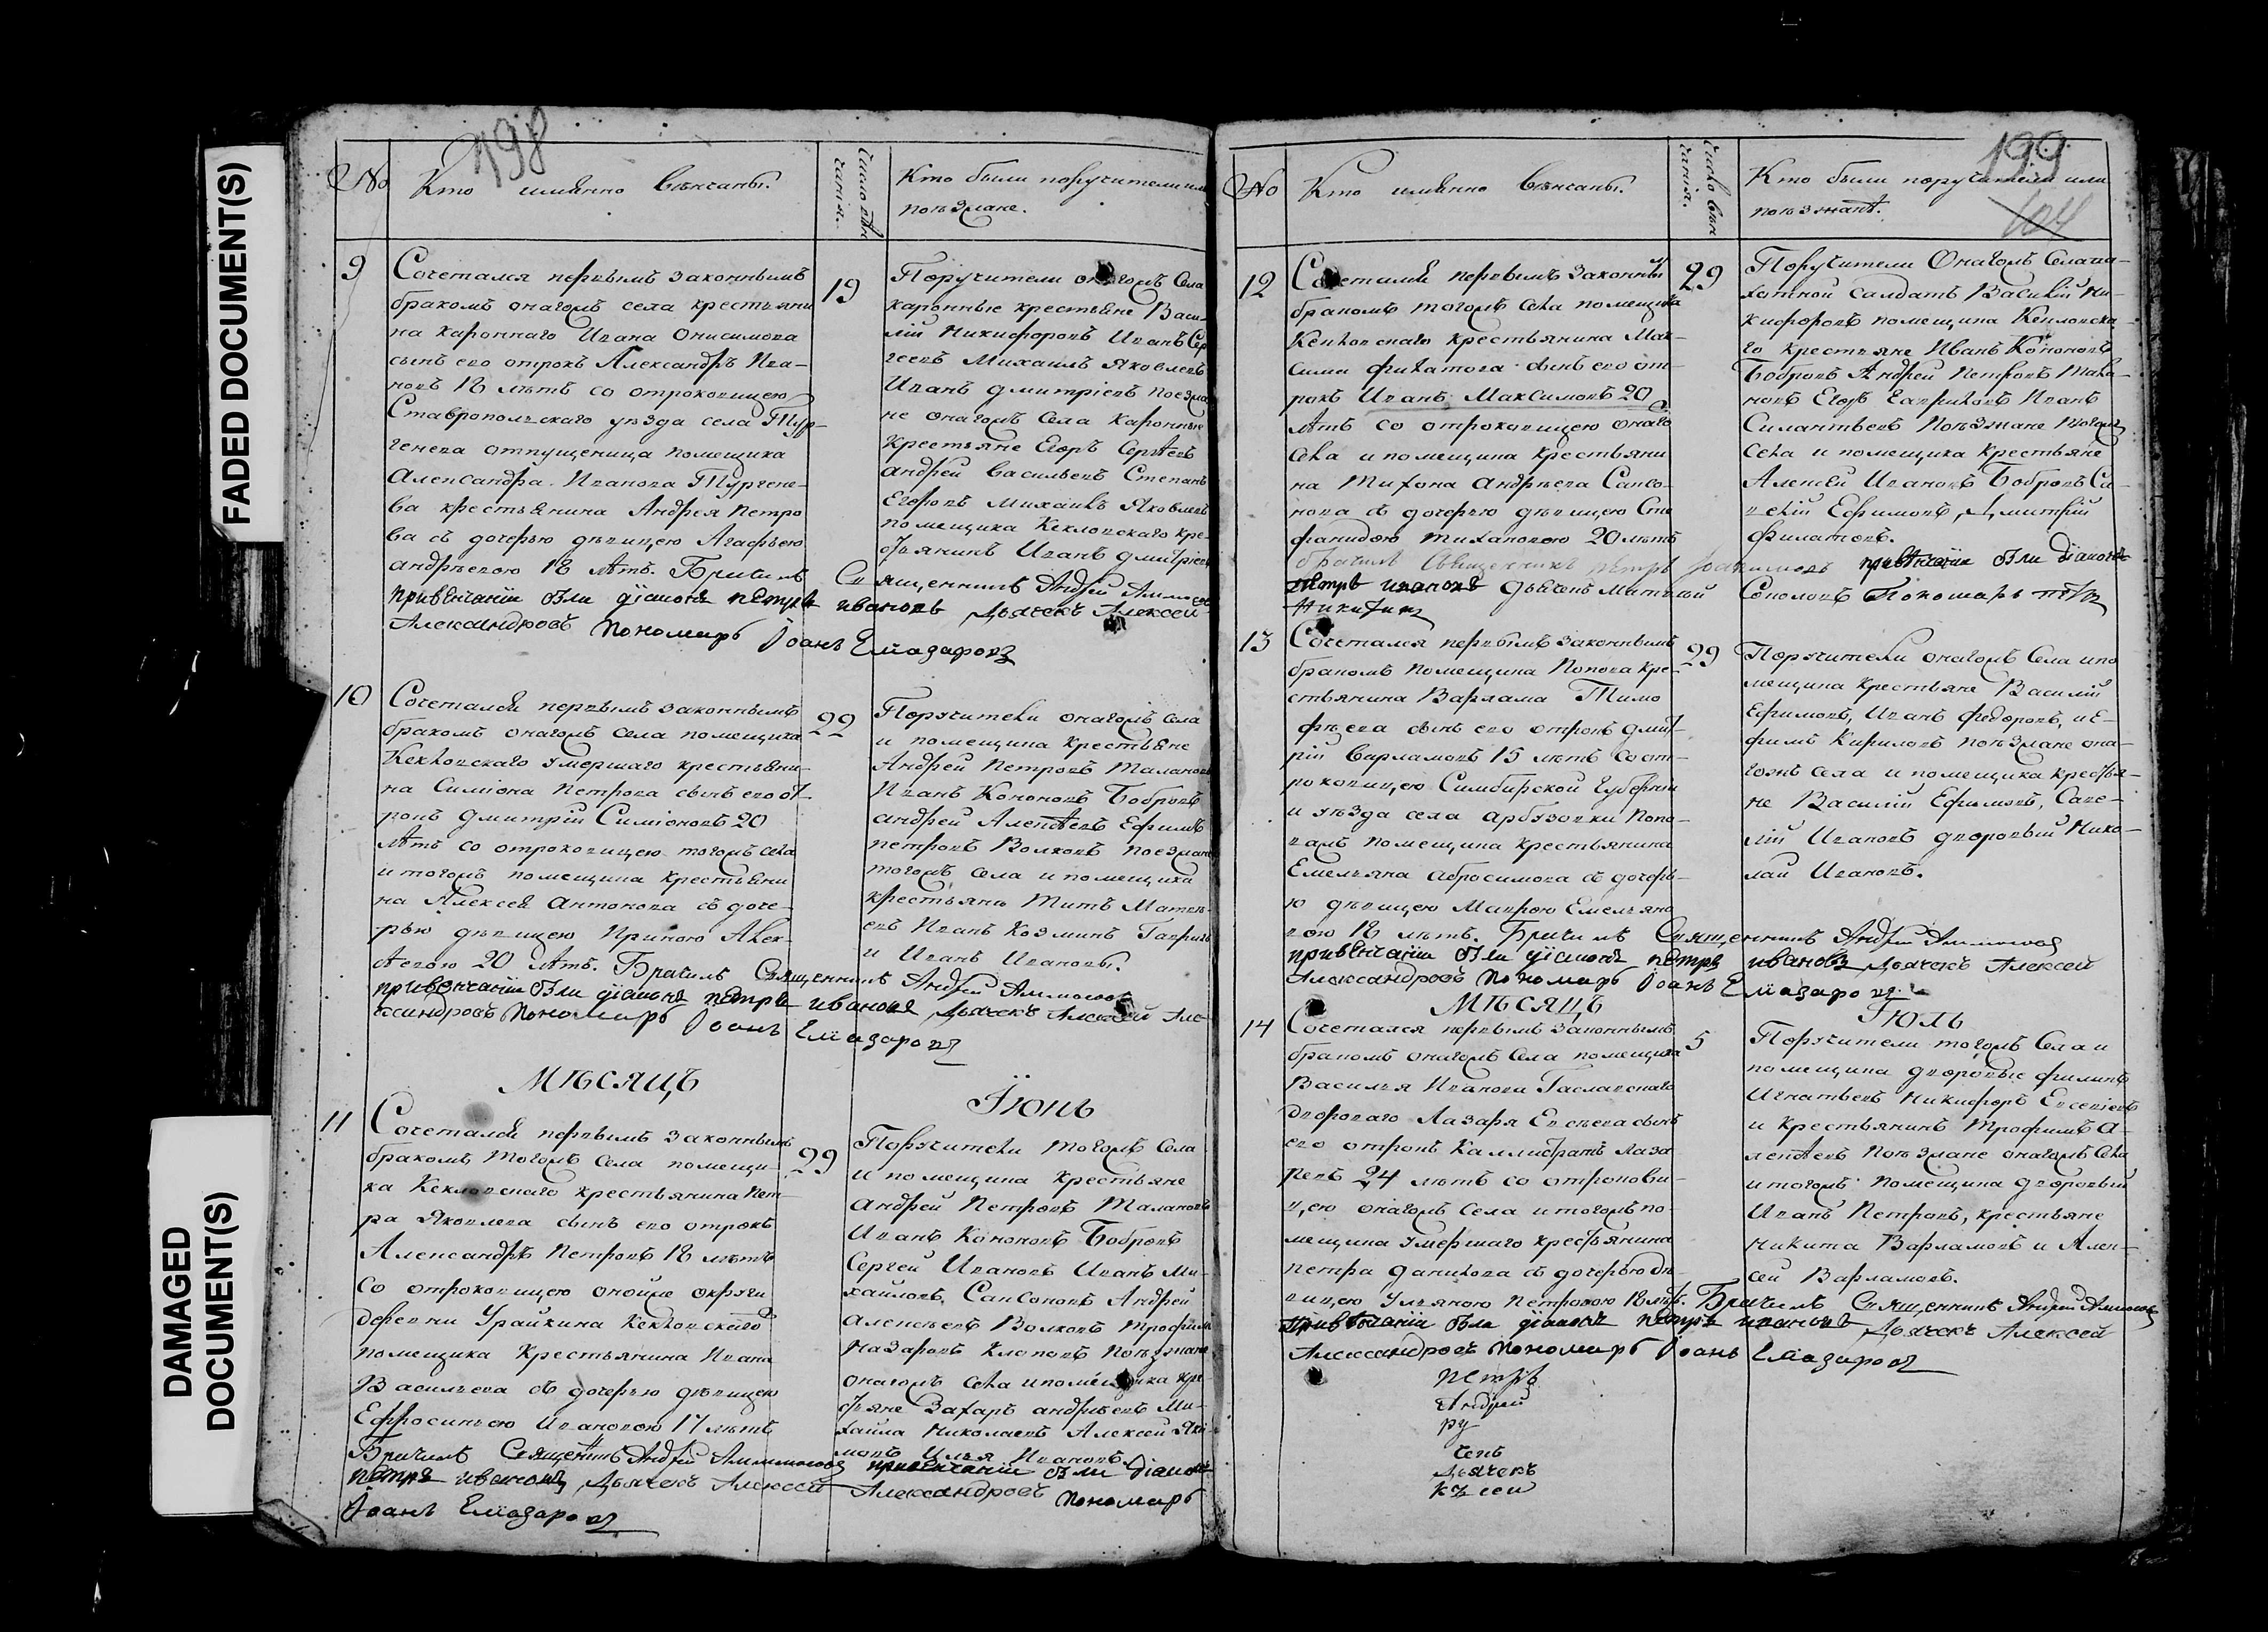 FADED DOCUMENT(S)
DAMAGED
DOCUMENT(S)
198
№
Кто имянно вѣнчаны.
Число вѣн
чанія.
Кто были поручители или
поѣзжане.
9
Сочетался первымъ законнымъ
бракомъ онагожъ села крестьяни
на каронного Ивана Онисимова
сынъ его отрокъ Александръ Ива-
новъ 18 лѣтъ со отроковицею
Ставропольскаго уѣзда села Тур-
генева отпущеница помещика
Александра Иванова Тургене-
ва крестьянина Андрея Петро
ва съ дочерью дѣвицею Агафьею
андрѣевою 18 лѣтъ. Бричилъ Священникъ Андрей
привѣнчаніи были діаконъ петръ ивановъ Дьячекъ Алексей
Александровъ пономарь Іоанъ Елиазаровъ
19
Поручители онагожъ Села
каронные крестьяне Васи-
лій Никифоровъ Иванъ Сер
геевъ Михаилъ Яковлевъ
Иванъ дмитріевъ поезжа
не онагожъ Села каронные
крестьяне Егоръ Сергѣевъ
андрей васильевъ Степанъ
Егоровъ михаилъ Яковлевъ
помещика Кекловского кре-
стьянинъ Иванъ дмитріевъ
10
Сочетался первымъ законнымъ
бракомъ онагожъ села помещика
Кекловскаго умершаго крестьяни-
на Симіона Петрова сынъ его от
рокъ дмитрій Симіоновъ 20
лѣтъ со отроковицею тогожъ села
и тогожъ помещика крестьяни
на Алексея антонова съ доче-
рью дѣвицею Ириною Алек-
сѣевою 20 лѣтъ. Брачилъ Священникъ Андрей
привенчаніи были діаконъ петръ ивановъ Дьячекъ Алексей Але-
ксандровъ пономарь Іоанъ Елиазаровъ
22
Поручители онагожъ Села
и помещика крестьяне
Андрей Петровъ Малановъ
Иванъ Кононовъ Бобровъ
андрей Алексѣевъ Ефимъ
петровъ Волковъ поезжане
тогожъ Села и помещика
крестьянъ Титъ Матвѣ-
евъ Иванъ Козминъ Гаврилъ
и Иванъ Ивановы.
Мѣсяцъ Іюнь
11
Сочетался первымъ законнымъ
бракомъ тогожъ села помещи-
ка Кекловскаго крестьянина Пет-
ра Яковлева сынъ его отрокъ
Александръ Петровъ 18 лѣтъ
со отроковицею онойже округи
деревни Урайкина Кекловскаго
помещика крестьянина Ивана
Васильева съ дочерью дѣвицею
Ефросиньею Ивановою 17 лѣтъ
Бричилъ Священникъ Андрей привѣнчаніи были діаконъ
петръ ивановъ Дьячекъ Алексей Александровъ пономарь
Іоанъ Елиазаровъ
29
Поручители тогожъ Села
и помещика крестьяне
андрей Петровъ Малановъ
Иванъ Кононовъ Бобровъ
Сергей Ивановъ Иванъ Ми-
хайловъ Сапсоновъ Андрей
алексѣевъ Волковъ трофимъ
Назаровъ Клоповъ Поѣзжане
онагожъ Села и помещика кре
стьяне Захаръ андрѣевъ Ми-
хаила Николаевъ Алексей Яки-
мовъ Илья Ивановъ.
199
104
№
Кто имянно вѣнчаны.
Число вѣн
чанія.
Кто были поручители или
поѣзжанѣ.
12
Сочетался первымъ законны
бракомъ тогожъ села помещика
Кекловскаго крестьянина Мак-
сима филатова сынъ его от-
рокъ Иванъ Максимовъ 20
лѣтъ со отроковицею онаго
Села и помещика крестьяни
на Тихона андрѣева Сапсо-
нова съ дочерью дѣвицею Сте
фанидою Тихановою 20 лѣтъ
брачилъ Священникъ петръ привѣнчаніи были діаконъ
петръ ивановъ дьячекъ Соколовъ Пономарь
Никитинъ
29
Поручители Онагожъ Села
салдатъ Василій Ни-
кифоровъ помещика Кекловска-
го крестьяне Иванъ Кононовъ
Бобровъ Андрей петровъ Мала-
новъ Егоръ Гавриловъ Иванъ
Силантьевъ Поѣзжане тогожъ
Села и помещика крестьяне
Алексѣй Ивановъ Бобровъ Са-
велій Ефимовъ, Дмитрій
филатовъ.
13
Сочетался первымъ законнымъ
бракомъ помещика Попова кре-
стьянина Варлама Тимо
фѣева сынъ его отрокъ дмит-
рій Варламовъ 15 лѣтъ со от-
роковицею Симбирской Губерніи
и уѣзда села арбузовки Попо-
вамъ помещика крестьянина
Емельяна абросимова съ дочерь-
ю дѣвицею Маврою Емельяно
вою 18 лѣтъ. Бричилъ Священникъ Андрей
привѣнчаніи были діаконъ петръ ивановъ Дьячекъ Алексей
Александровъ пономарь Іоанъ Елиазаровъ
29
Поручители онагожъ Села и по
мещика крестьяне Василій
Ефимовъ, Иванъ федоровъ, и Е-
фимъ Кириловъ поѣзжане она-
гожъ села и помещика крестья-
не Василій Ефимовъ, Саве-
лій Ивановъ дворовый Нико-
лай Ивановъ.
Мѣсяцъ Іюль
14
Сочетался первымъ законнымъ
бракомъ онагожъ Села помещика
Василья Иванова
дворового Лазаря Евсѣева сынъ
его отрокъ Каллистратъ Лаза
ревъ 24 лѣтъ со отрокови-
цею онагожъ Села и тогожъ по-
мещика умершаго крестьянина
петра данилова съ дочерью дѣ-
вицею Ульяною петровою 18 лѣтъ. Бричилъ Священникъ Андрей
привѣнчаніи были діаконъ петръ ивановъ Дьячекъ Алексей
Александровъ пономарь Іоанъ Елиазаровъ
5
Поручители тогожъ Села и
помещика дворовые филипъ
Игнатьевъ Никифоръ Евсевіевъ
и крестьянинъ Трофимъ а-
лексѣевъ Поѣзжане онагожъ Села
и тогожъ помещика дворовый
Иванъ Петровъ, крестьяне
Никита Варламовъ и Алек-
сей Варламовъ.
петръ
Андрей
ру
чепъ
Дьячекъ